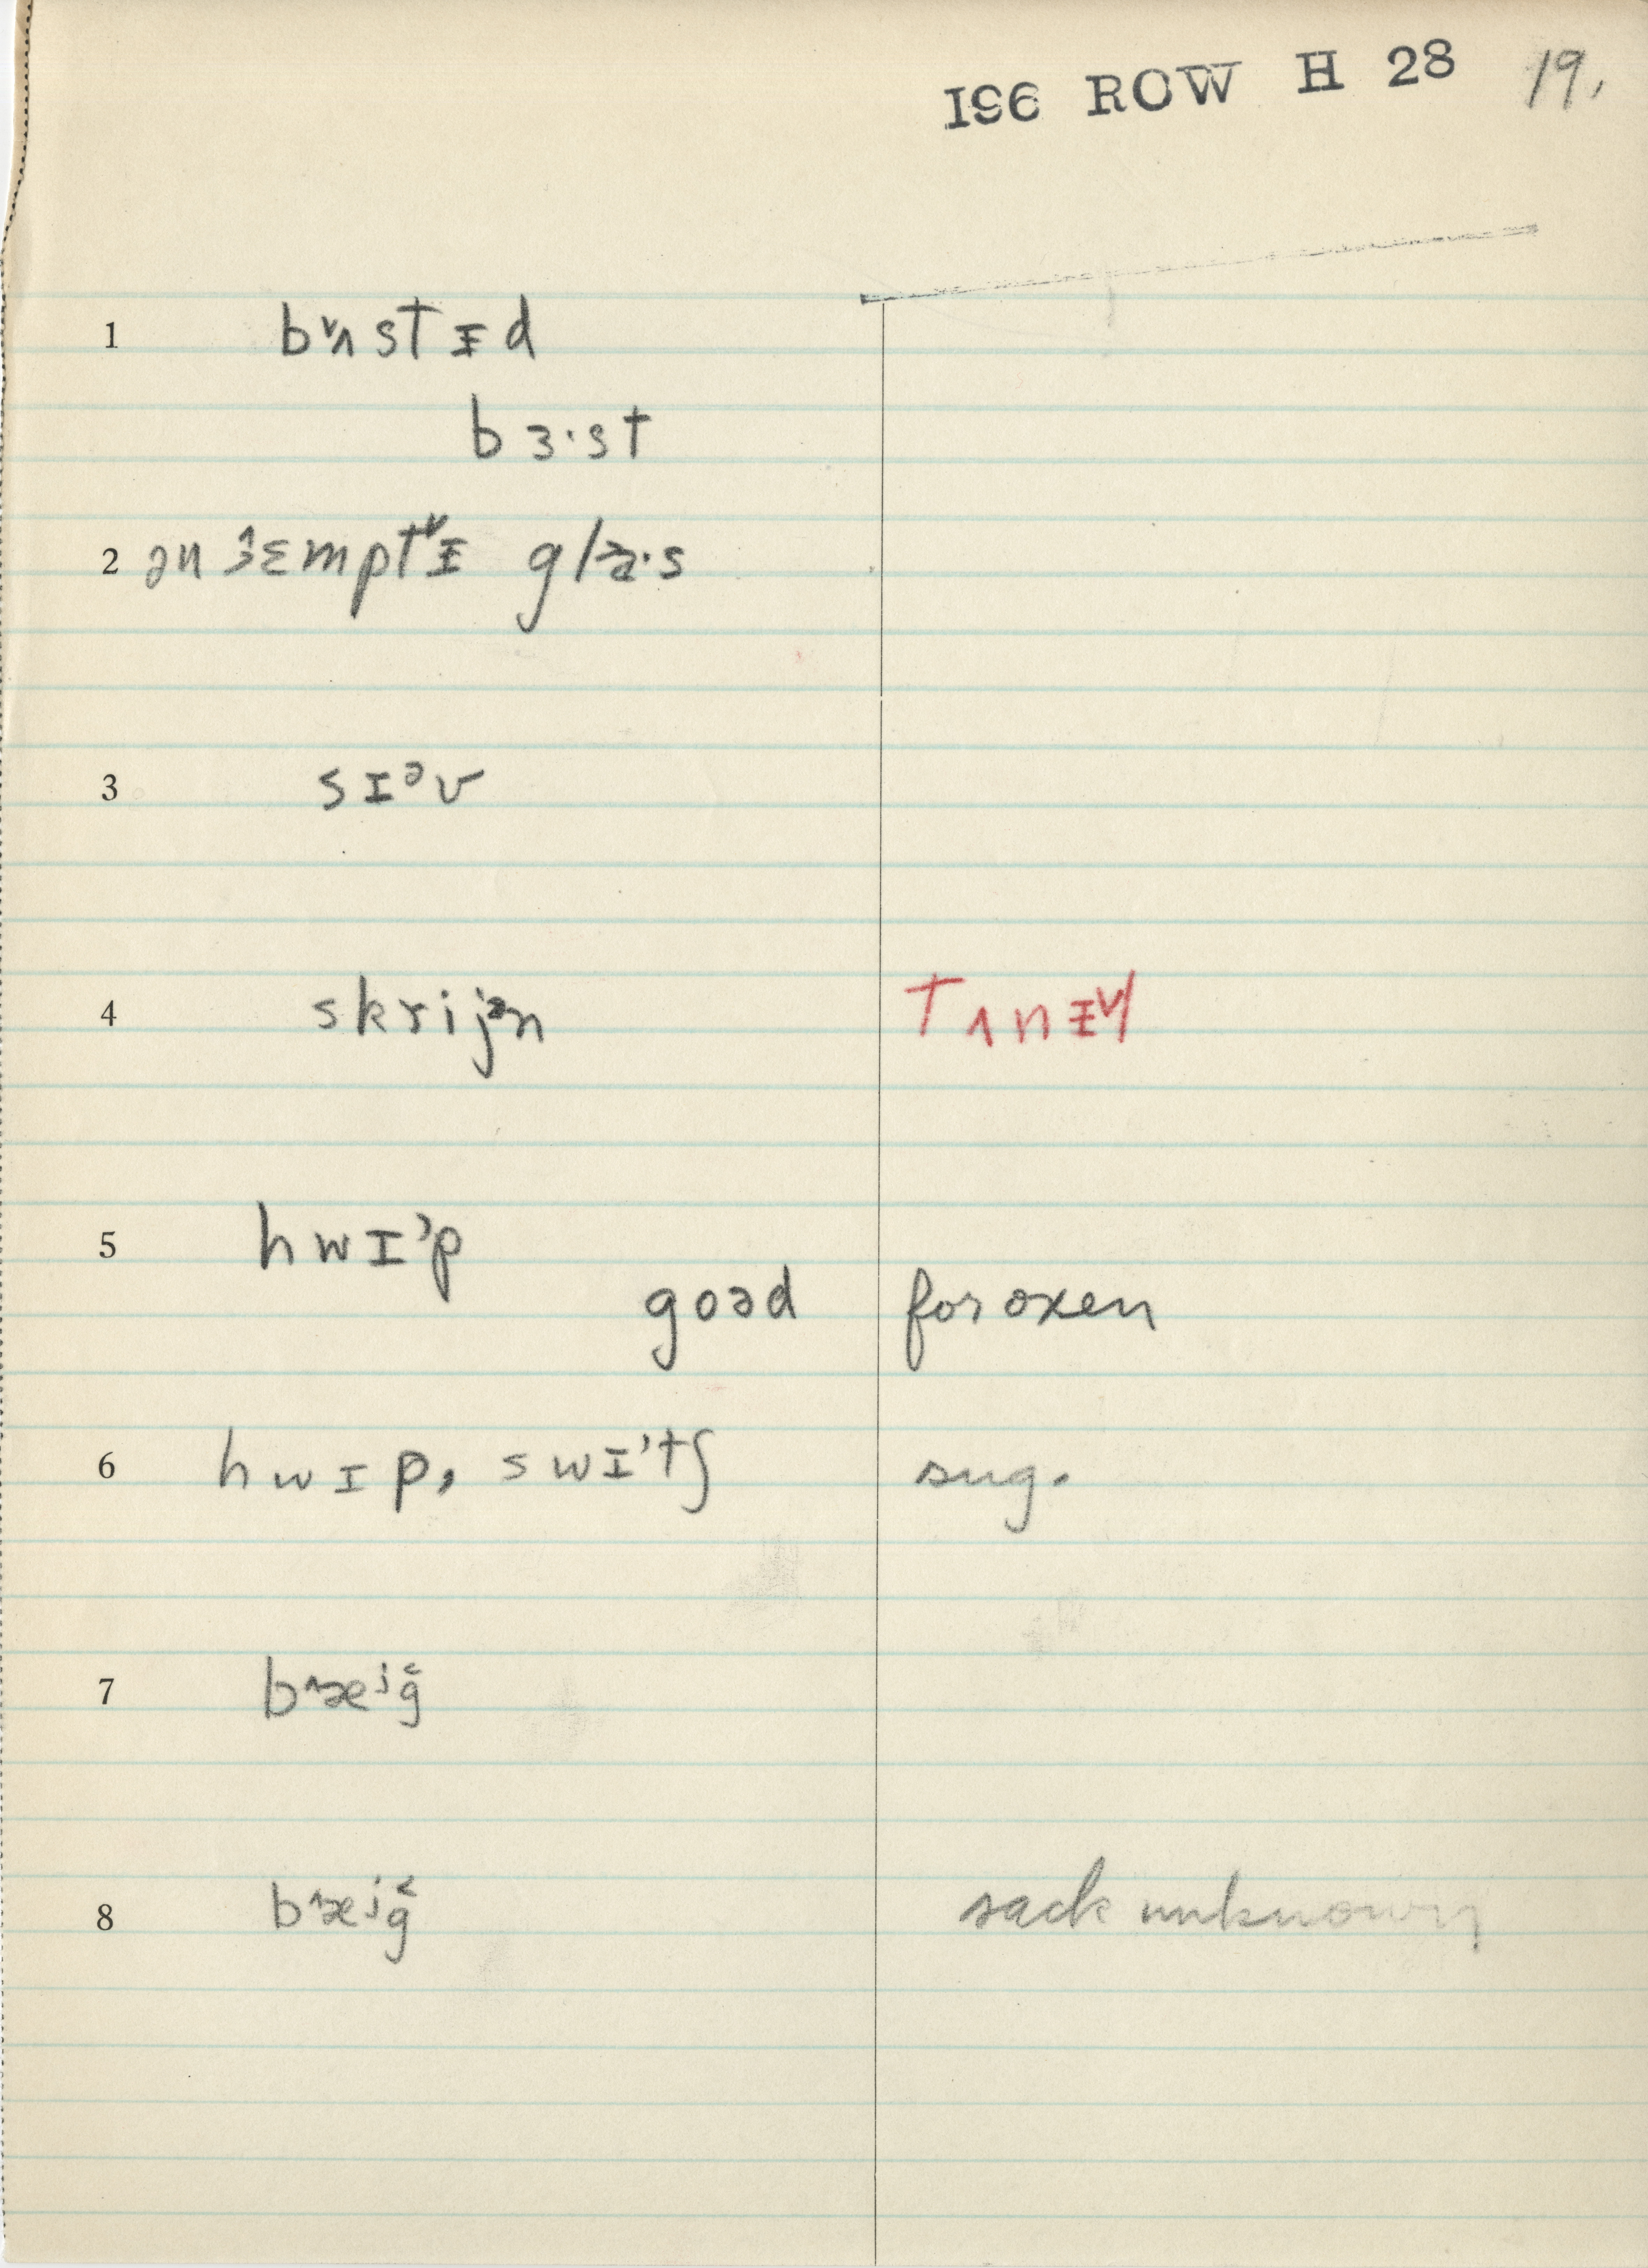 196 ROW H 28 19.
1 bᵛʌstᵻd
bɜ·st
2 ən ɛmptᵛᵻ glæ·s
3 sɪᵊv
4 skrijᵊn tʌnᵻᵛl
5 hwɪᵊp
goəd for oxen
6 hwɪp, swɪᵊtʃ sug.
7 b^æⁱǧ
8 b^æⁱǧ sack unknown